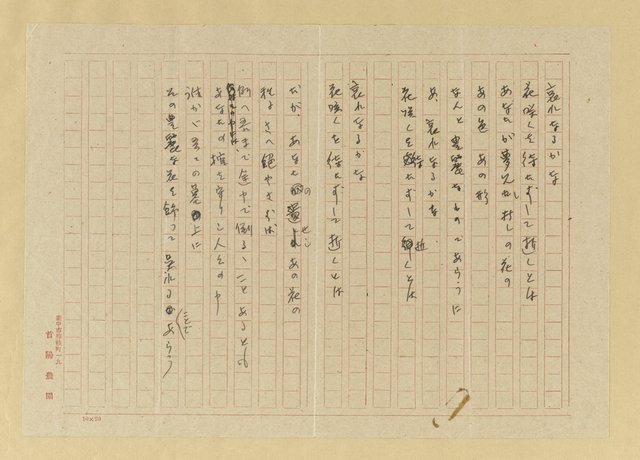 哀れなるかな
花咲くを待たずして逝しとは
あなたが夢見た 村しの花の
あの色 あの形
なんと豊麗なものであらうに
あゝ 哀れなるかな
花咲くを待たずして逝くとは
哀れなるかな
花咲くを待たずして逝しとは
だが、あなたののこし あの花の
種さへ絶やさずば
例へ君まで途中で倒るゝことあるとも
あなたの種を守り 人その中
誰かゞ君の墓の上に
その豊麗な花を飾って呉れることであらう
臺中市梅枝町一九
首陽農園
10×20